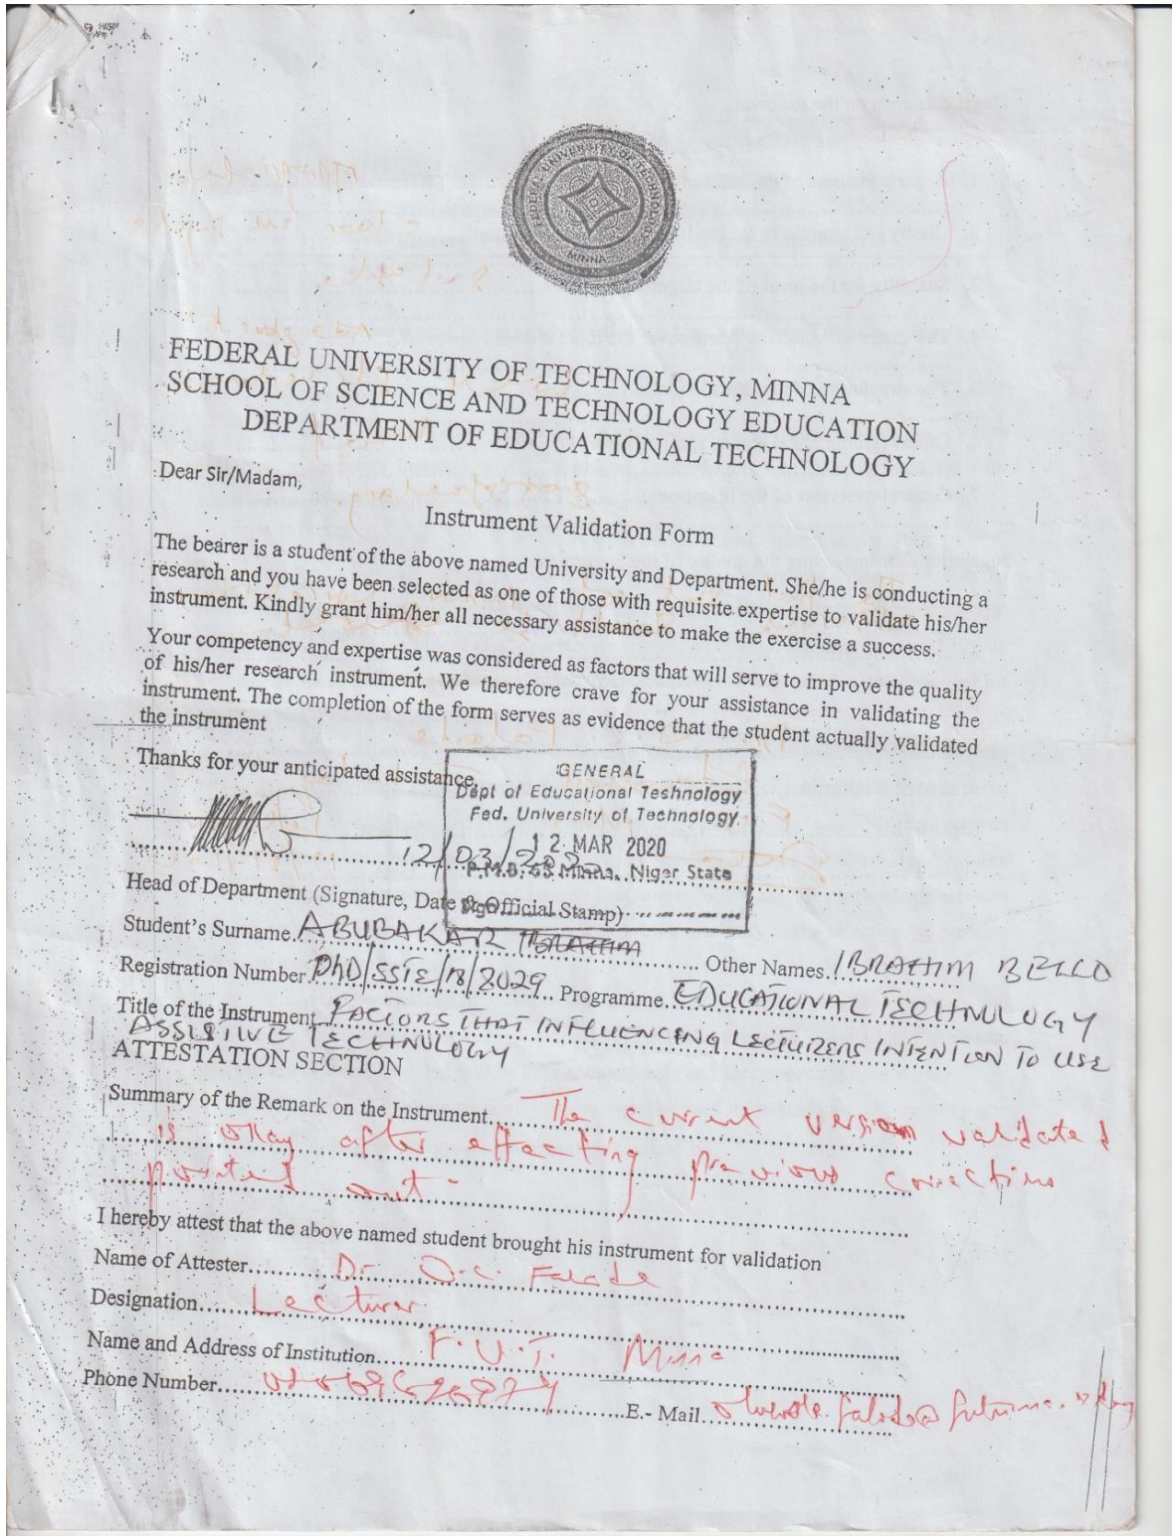 FEDERAL UNIVERSITY OF TECHNOLOGY
MINNA
FEDERAL UNIVERSITY OF TECHNOLOGY, MINNA
SCHOOL OF SCIENCE AND TECHNOLOGY EDUCATION
DEPARTMENT OF EDUCATIONAL TECHNOLOGY
Dear Sir/Madam,
Instrument Validation Form
The bearer is a student of the above named University and Department. She/he is conducting a
research and you have been selected as one of those with requisite expertise to validate his/her
instrument. Kindly grant him/her all necessary assistance to make the exercise a success.
Your competency and expertise was considered as factors that will serve to improve the quality
of his/her research instrument. We therefore crave for your assistance in validating the
instrument. The completion of the form serves as evidence that the student actually validated
the instrument
Thanks for your anticipated assistance.
GENERAL
Dept of Educational Teshnology
Fed. University of Technology
12 MAR 2020
P.M.B. 65 Minna, Niger State
12/03/2020
Head of Department (Signature, Date & Official Stamp)
Student's Surname ABUBAKAR IBRAHIM Other Names IBRAHIM BELLO
Registration Number PhD/SSTE/18/2029 Programme EDUCATIONAL TECHNOLOGY
Title of the Instrument FACTORS THAT INFLUENCING LECTURERS INTENTION TO USE
ASSISTIVE TECHNOLOGY
ATTESTATION SECTION
Summary of the Remark on the Instrument The current version validated
is okay after effecting previous corrections
pointed out
I hereby attest that the above named student brought his instrument for validation
Name of Attester Dr. O.C. Falade
Designation Lecturer
Name and Address of Institution F.U.T. Minna
Phone Number
E.- Mail